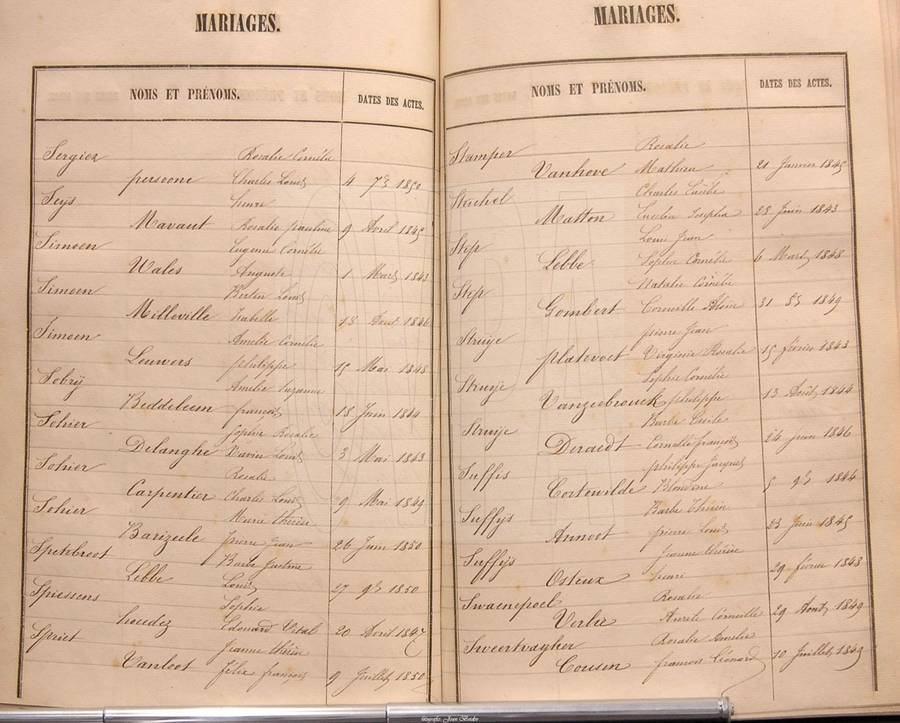 MARIAGES.
NOMS ET PRÉNOMS. DATES DES ACTES.
Sergier Rosalie Cornélie
persoone Charles Louis 4 7bre 1850
Seys henri
Mavaut Rosalie pauline 9 Avril 1845
Simoen Eugenie Cornélie
Wales Auguste 1 Mars 1843
Simoen Bertin Louis
Milleville Isabelle 13 Aout 1846
Simoen Amelie Cornelie
Leuwers philippe 15 Mai 1848
Sobry Amelie Suzanne
Beddeleem francois 18 Juin 1844
Sohier Sophie Rosalie
Delanghe Louis 3 Mai 1843
Sohier Rosalie
Carpentier Charles Louis 9 Mai 1849
Sohier Marie thérèse
Barizeele pierre Jean 26 Juin 1850
Spetebroot Barbe Justine
Lebbe Louis 27 9bre 1850
Spiessens Sophie
houdez Edouard Vital 20 Avril 1847
Spriet jeanne thérèse
Vanloot félix francois 9 Juillet 1850
MARIAGES.
NOMS ET PRÉNOMS. DATES DES ACTES.
Stamper Rosalie
Vanhove Mathieu 21 Janvier 1845
Charles
Matton Josepha 28 Juin 1843
Step Louis Jean
Lebbe Sophie Cornélie 6 Mars 1848
Step Natalie Cornélie
Gombert Corneille 31 1849
Struye pierre Jean
platevoet Virginie Rosalie 15 février 1843
Struye Sophie Cornélie
Vanzeebrouck philippe 13 Août 1844
Struye Barbe Cécile
Deraedt francois 24 juin 1846
Suffis philippe Jacques
Cortewilde Blondine 5 9bre 1844
Suffys Barbe thérèse
Annoot pierre Louis 23 Juin 1845
Suffys Jeanne thérèse
Osteux henri 29 février 1848
Swaenepoel Rosalie
Verlie Aurele Corneille 29 Aout 1849
Sweertvagher Rosalie Amelie
Cousin francois Léonard 10 Juillet 1849
fotografie: Jean Becker